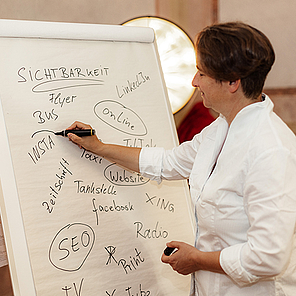 SICHTBARKEIT
Flyer
LinkedIn
BUS
Online
INSTA
TikTok
Taxi
Website
Zeitschrift
Tankstelle
facebook
XING
SEO
Radio
Print
TV
YouTube